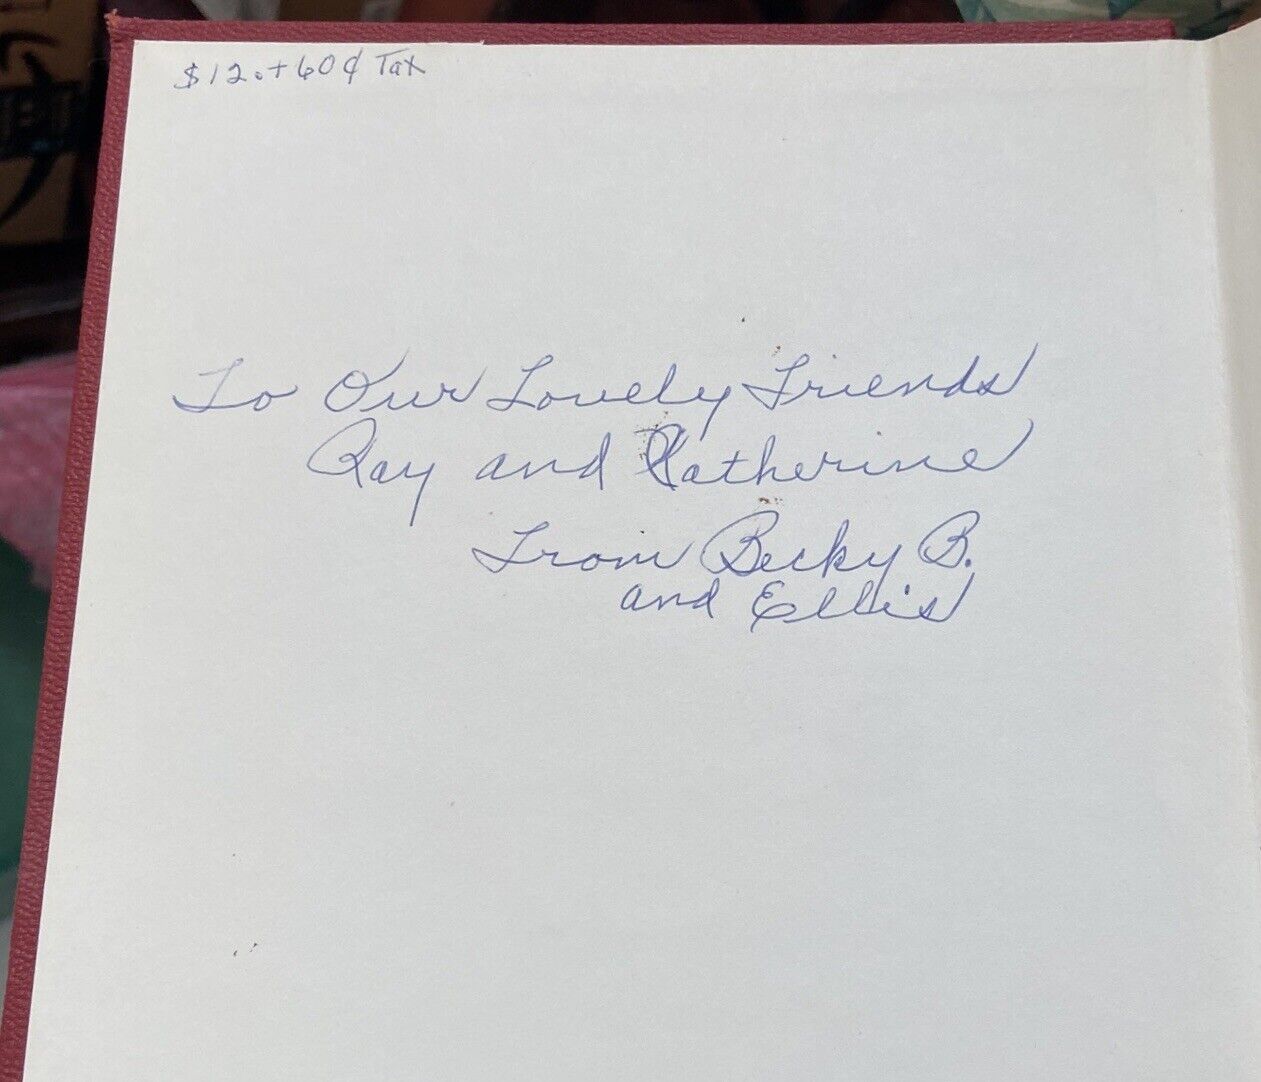 $12.+60¢ Tax
To Our Lovely Friends
Ray and Katherine
From Becky B.
and Ellis